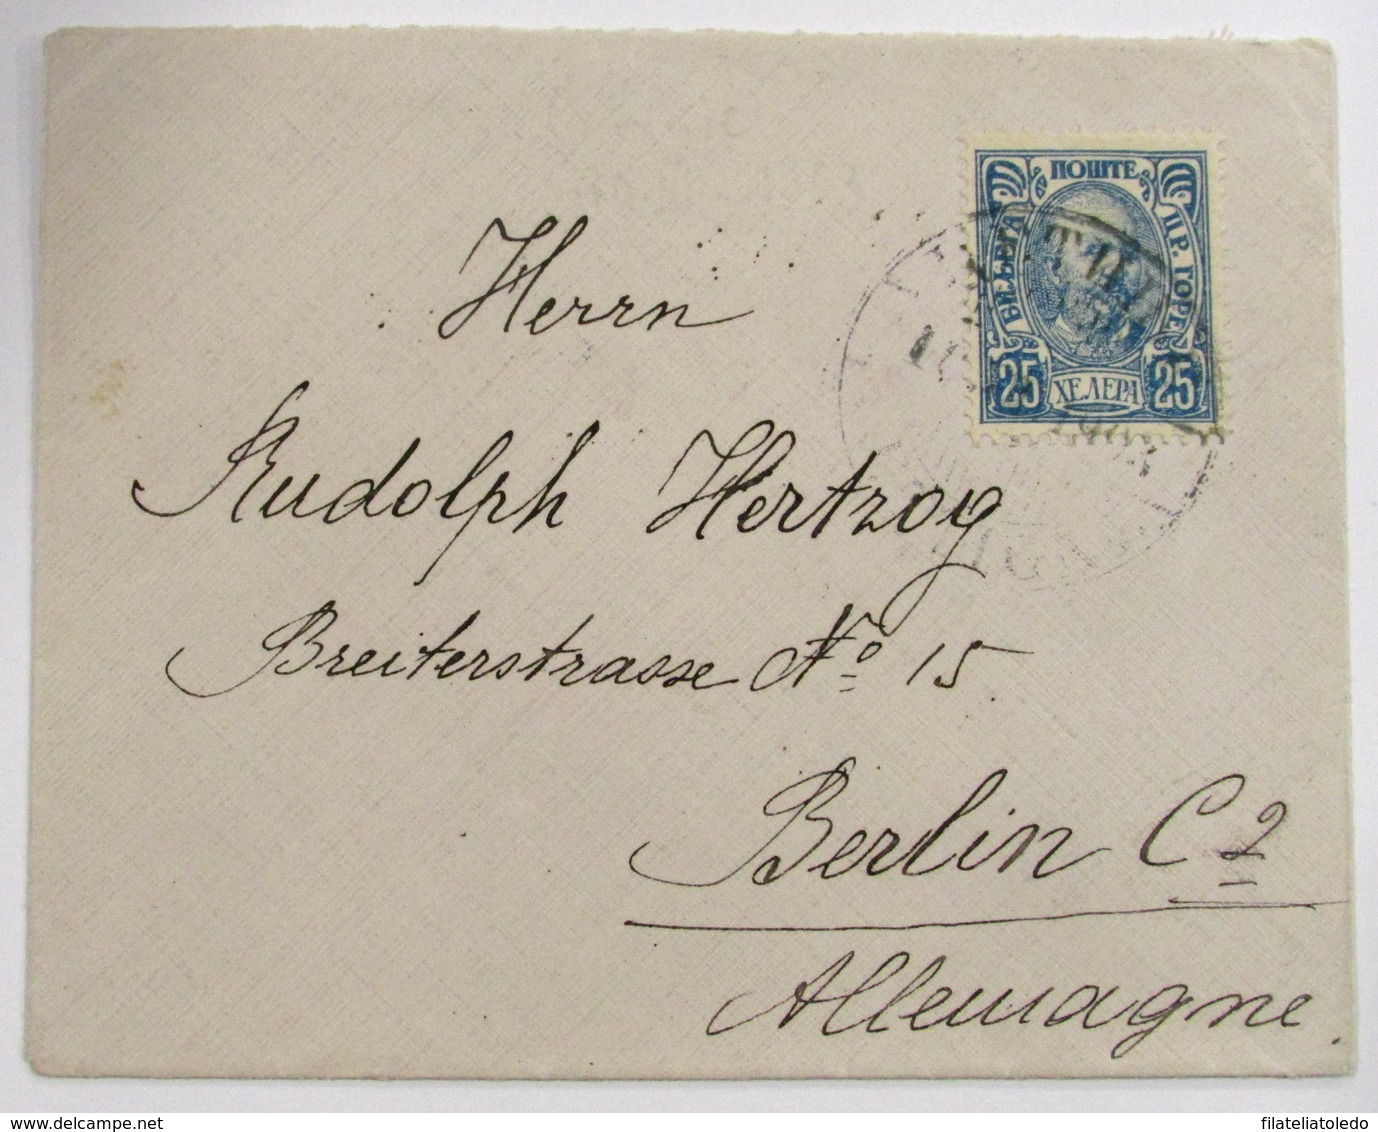 ПОШТЕ
БИЉЕГА
ПР. ГОРЕ
25 ХЕЛЕРА 25
Herrn
Rudolph Hertzog
Breiterstrasse No 15
Berlin C 2
Allemagne
filateliatoledo